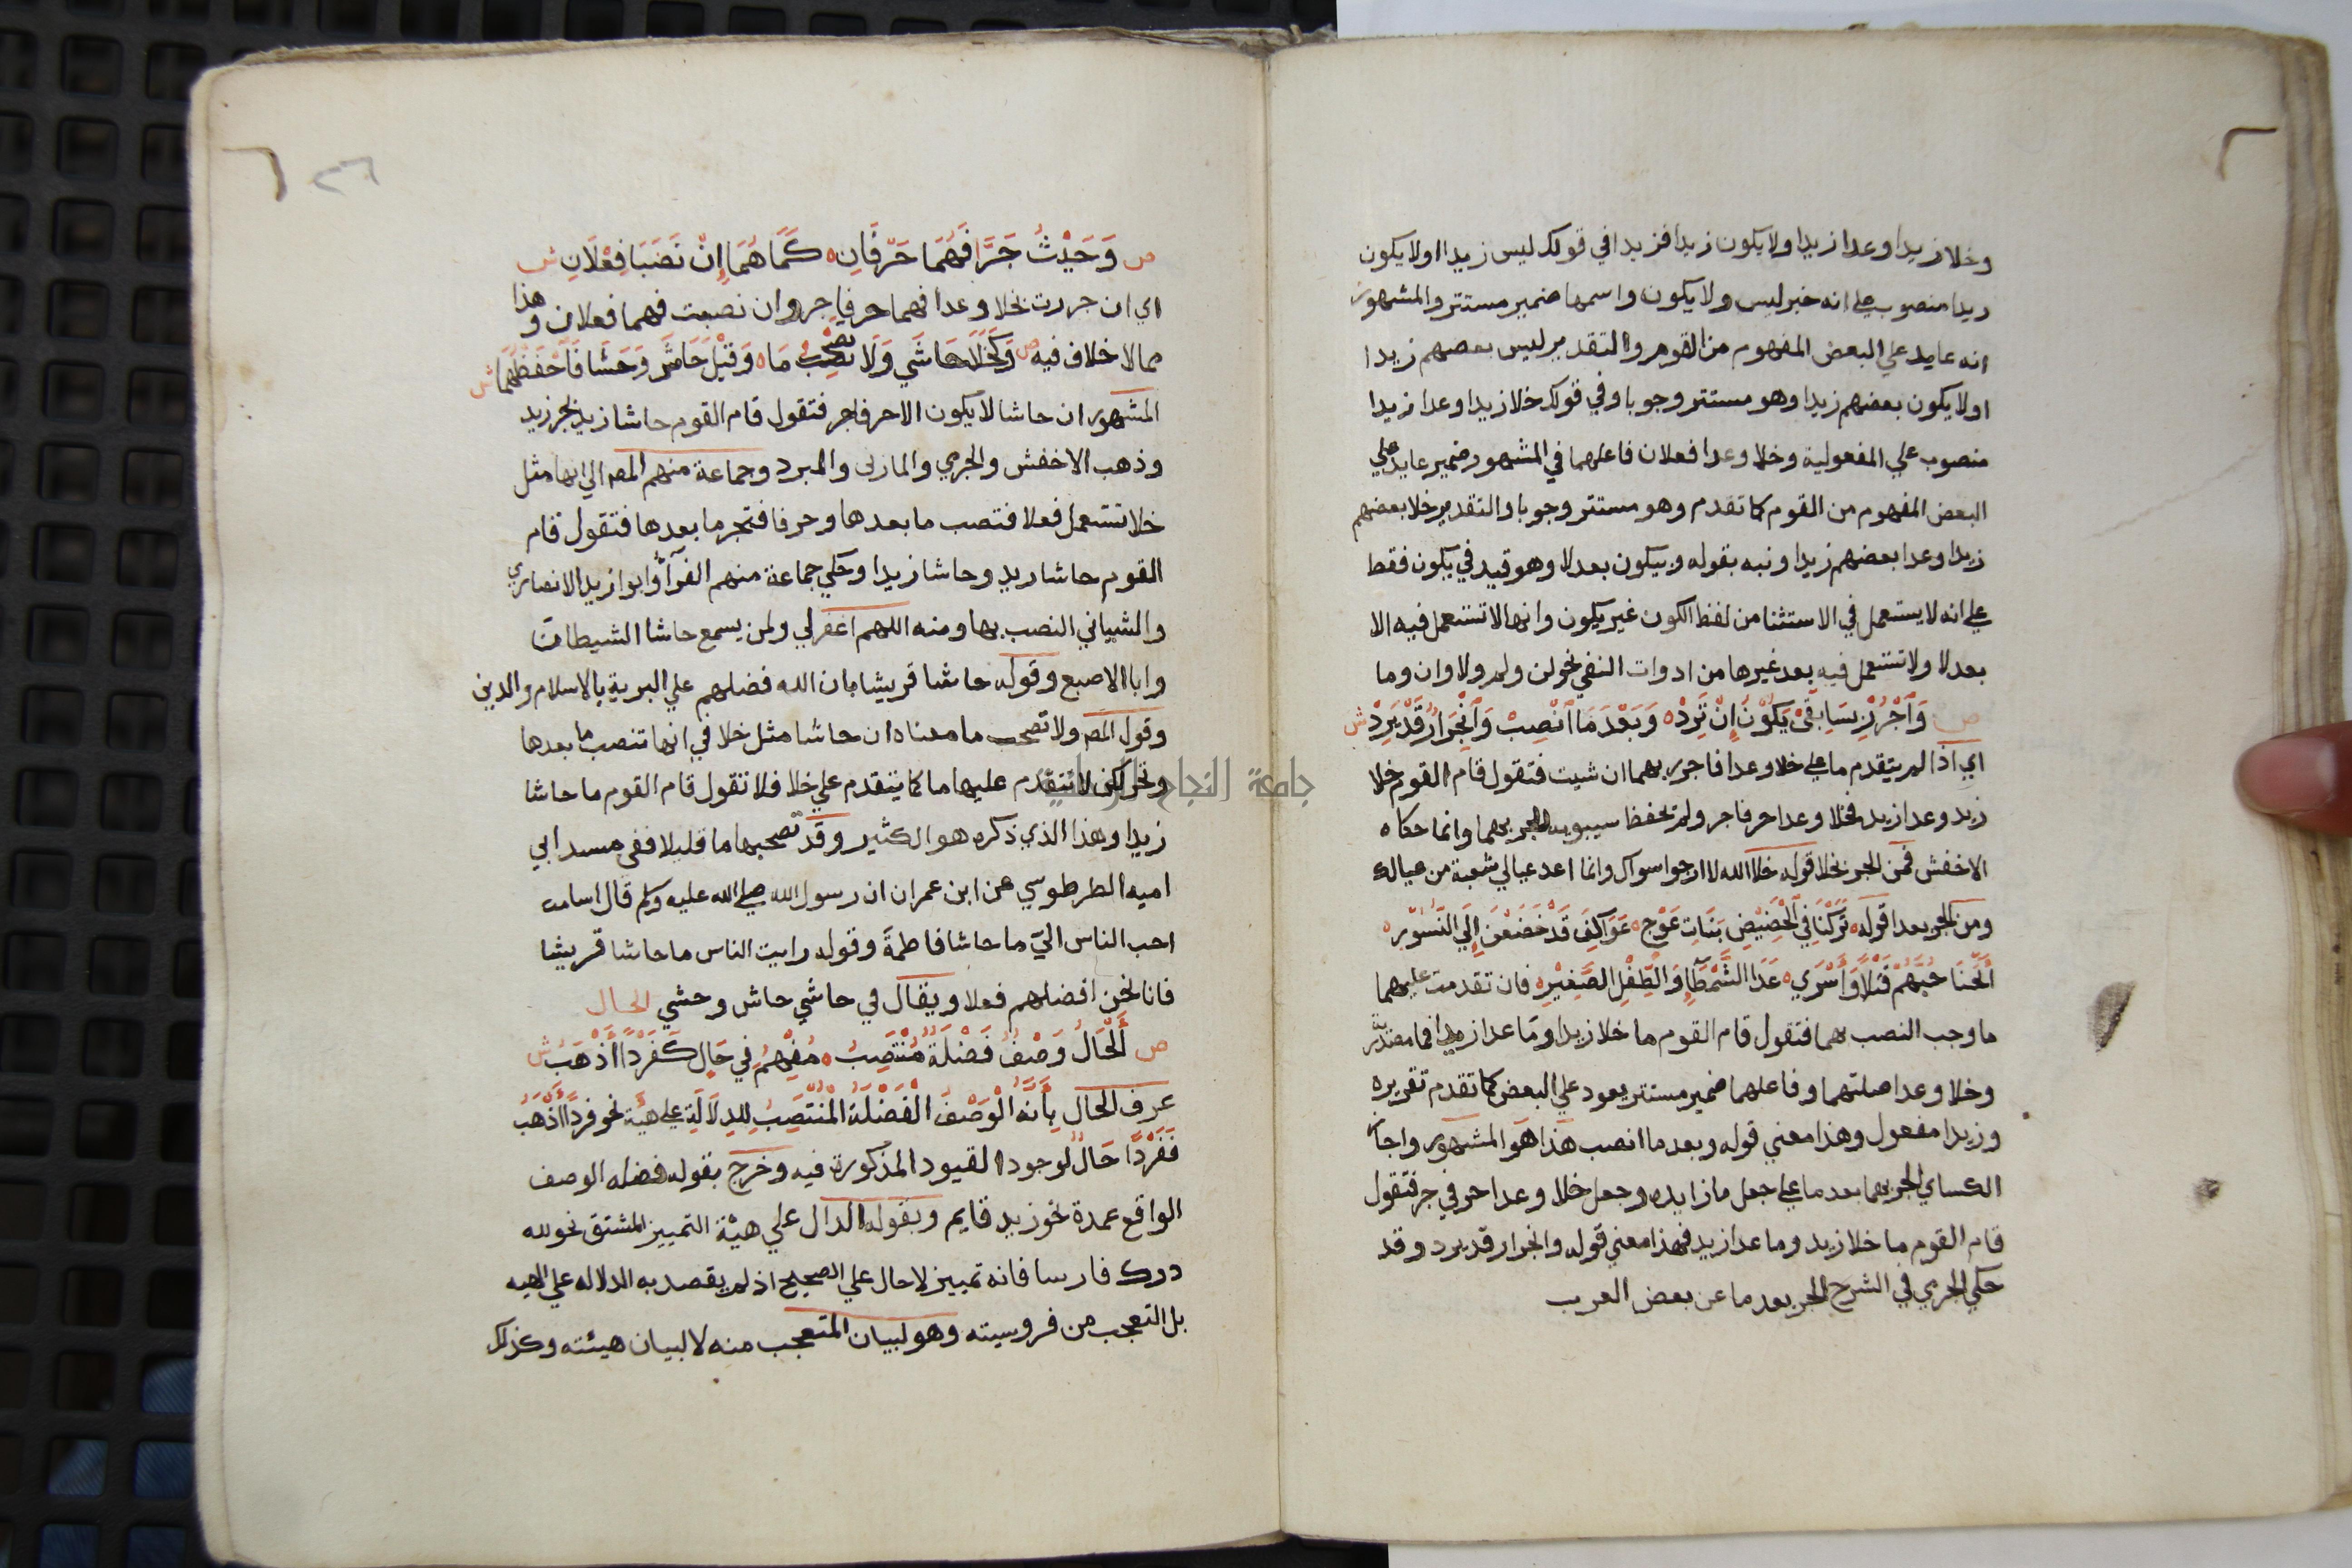 وخلا زيدا وعدا زيدا ولا يكون زيدا فزيدا في قولك ليس زيدا اولا يكون
زيدا منصوب علي انه خبر ليس ولا يكون واسمها ضمير مستتر والمشهور
انه عايد علي البعض المفهوم من القوم والتقدير ليس بعضهم زيدا
اولا يكون بعضهم زيدا وهو مستتر وجوبا وفي قولك خلا زيدا وعدا زيدا
منصوب علي المفعولية وخلا وعدا فعلان فاعلهما في المشهور ضمير عايد علي
البعض المفهوم من القوم كما تقدم وهو مستتر وجوبا والتقدير خلا بعضهم
زيدا وعدا بعضهم زيدا ونبه بقوله وبيكون بعد لا وهو قيد في يكون فقط
علي انه لا يستعمل في الاستثنا من لفظ الكون غير يكون وانها لا تستعمل فيه الا
بعد لا ولا تستعمل فيه بعد غيرها من ادوات النفي نحو لن ولم ولا وان وما
ص وَاجْرُرْ بِسَابِقَيْ يَكُوْنُ إِنْ تُرِدْ ۵ وَبَعْدَ مَا انْصِبْ وَانْجِرَارٌ قَدْ يَرِدْ ش
اي اذا لم يتقدم ما علي خلا وعدا فاجرر بهما ان شيت فتقول قام القوم خلا
زيد وعدا زيد فخلا وعدا حرفا جر ولم يحفظ سيبويه الجر بهما وانما حكاه
الاخفش فمن الجر بخلا قوله خلا الله لا ارجوا سواك وانما اعد عيالي شعبة من عيالك
ومن الجر بعدا قوله ۵ تَرَكْنَا فِي الْحَضِيْضِ بَنَاتِ عَوْجٍ ۵ عَوَاكِفَ قَدْ خَضَعْنَ إِلَي النُّسُوْرِ ۵
أَبَحْنَا حَيَّهُمْ قَتْلًا وَأَسْرَي ۵ عَدَا الشَّمْطَاءِ وَالطِّفْلِ الصَّغِيْرِ ۵ فان تقدمت عليهما
ما وجب النصب بهما فتقول قام القوم ما خلا زيدا وما عدا زيدا فما مصدرية
وخلا وعدا صلتهما وفاعلهما ضمير مستتر يعود علي البعض كما تقدم تقريره
وزيدا مفعول وهذا معني قوله وبعد ما انصب هذا هو المشهور واجاز
الكساي الجر بهما بعد ما علي جعل ما زايده وجعل خلا وعدا حرفي جر فتقول
قام القوم ما خلا زيد وما عدا زيد فهذا معني قوله وانجرار قد يرد وقد
حكي الجرمي في الشرح الجر بعد ما عن بعض العرب
٢٦
ص وَحَيْثُ جَرَّا فَهُمَا حَرْفَانِ ۵ كَمَا هُمَا إِنْ نَصَبَا فِعْلَانِ ش
اي ان جررت بخلا وعدا فهما حرفا جر وان نصبت فهما فعلان وهذا
مما لا خلاف فيه ص وَكَخَلَا حَاشَي وَلَا تَصْحَبُ مَا ۵ وَقِيْلَ حَاشَ وَحَشَا فَاحْفَظْهُمَا ش
المشهور ان حاشا لا يكون الا حرف جر فتقول قام القوم حاشا زيد بجر زيد
وذهب الاخفش والجرمي والمازني والمبرد وجماعة منهم المصـ الي انها مثل
خلا تستعمل فعلا فتنصب ما بعدها وحرفا فتجر ما بعدها فتقول قام
القوم حاشا زيد وحاشا زيدا وحكي جماعة منهم الفرآ وابوا زيد الانصاري
والشيباني النصب بها ومنه اللهم اغفر لي ولمن يسمع حاشا الشيطان
وابا الاصبع وقوله حاشا قريشا بان الله فضلهم علي البرية بالاسلام والدين
وقول المصـ ولا تصحب ما معناه ان حاشا مثل خلا في انها تنصب ما بعدها
وتجر لكن لا تتقدم عليها ما كما يتقدم علي خلا فلا تقول قام القوم ما حاشا
زيدا وهذا الذي ذكره هو الكثير وقد تصحبها ما قليلا ففي مسند ابي
اميه الطرطوسي عن ابن عمر ان رسول الله صلي الله عليه وسلم قال اسامه
احب الناس اليّ ما حاشا فاطمة وقوله رايت الناس ما حاشا قريشا
فانا نحن افضلهم فعلا ويقال في حاشي حاش وحشي الحال
ص أَلْحَالُ وَصْفٌ فَضْلَةٌ مُنْتَصِبُ ۵ مُفْهِمُ فِي حَالِ كَفَرْدًا أَذْهَبُ ش
عرف الحال بِأَنَّهُ الْوَصْفُ الْفَضْلَةُ الْمُنْتَصِبُ لِلدِلَالَةِ علي هيئة نحو فردًا أَذْهَبُ
فَفَرْدًا حَالٌ لوجود القيود المذكورة فيه وخرج بقوله فضله الوصف
الواقع عمدة نحو زيد قايم وبقوله الدال علي هيئة التمييز المشتق نحو لله
درك فارسا فانه تمييز لا حال علي الصحيح اذ لم يقصد به الدلاله علي الهيه
بل التعجب من فروسيته وهو لبيان المتعجب منه لا لبيان هيئته وكذلك
جامعة النجاح